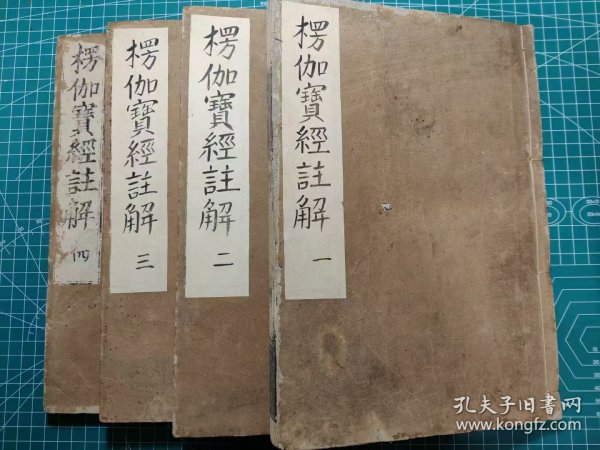 楞伽寶經註解 一
楞伽寶經註解 二
楞伽寶經註解 三
楞伽寶經註解 四
孔夫子旧書网
www.kongfz.com